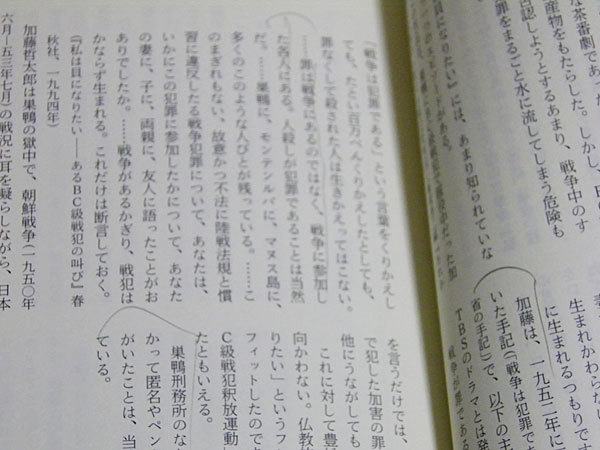 な茶番劇であ
産物をもたらした。しかし、B
否認しようとするあまり、戦争中のす
をまるごと水に流してしまう危険も
貝になりたい』には、あまり知られていな
生まれかわらな
に生まれるつもりです
加藤は、一九五二年に
いた手記(「戦争は犯罪で
省の手記)で、以下の主
TBSのドラマとは発
戦争が罪である
「戦争は犯罪である」という言葉をくりかえし
ても、たとい百万べんくりかえしたとしても、
罪なくして殺された人は生きかえってはこない。
……罪は戦争にあるのではなく、戦争に参加し
た各人にある。人殺しが犯罪であることは当然
だ。……巣鴨に、モンテンルパに、マヌス島に、
多くのこのような人びとが残っている。……こ
のまぎれもない、故意かつ不法に陸戦法規と慣
習に違反したる戦争犯罪について、あなたは、
いかにこの犯罪に参加したかについて、あなた
の妻に、子に、両親に、友人に語ったことがお
ありでしたか。……戦争があるかぎり、戦犯は
かならず生まれる。これだけは断言しておく。
『私は貝になりたい――あるBC級戦犯の叫び』春
秋社、一九九四年)
加藤哲太郎は巣鴨の獄中で、朝鮮戦争(一九五〇年
六月―五三年七月)の戦況に耳を凝らしながら、日本
を言うだけでは、
で犯した加害の罪
他にうながしても
これに対して豊
向かわない。仏教
りたい」というフ
フィットしたので
C級戦犯釈放運動
たともいえる。
巣鴨刑務所のな
かって匿名やペン
がいたことは、当
ている。